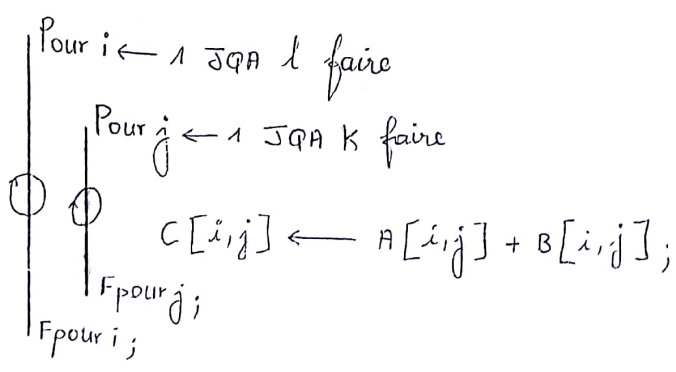 Pour i ← 1 JQA l faire
Pour j ← 1 JQA K faire
C[i,j] ← A[i,j] + B[i,j];
Fpour j;
Fpour i;